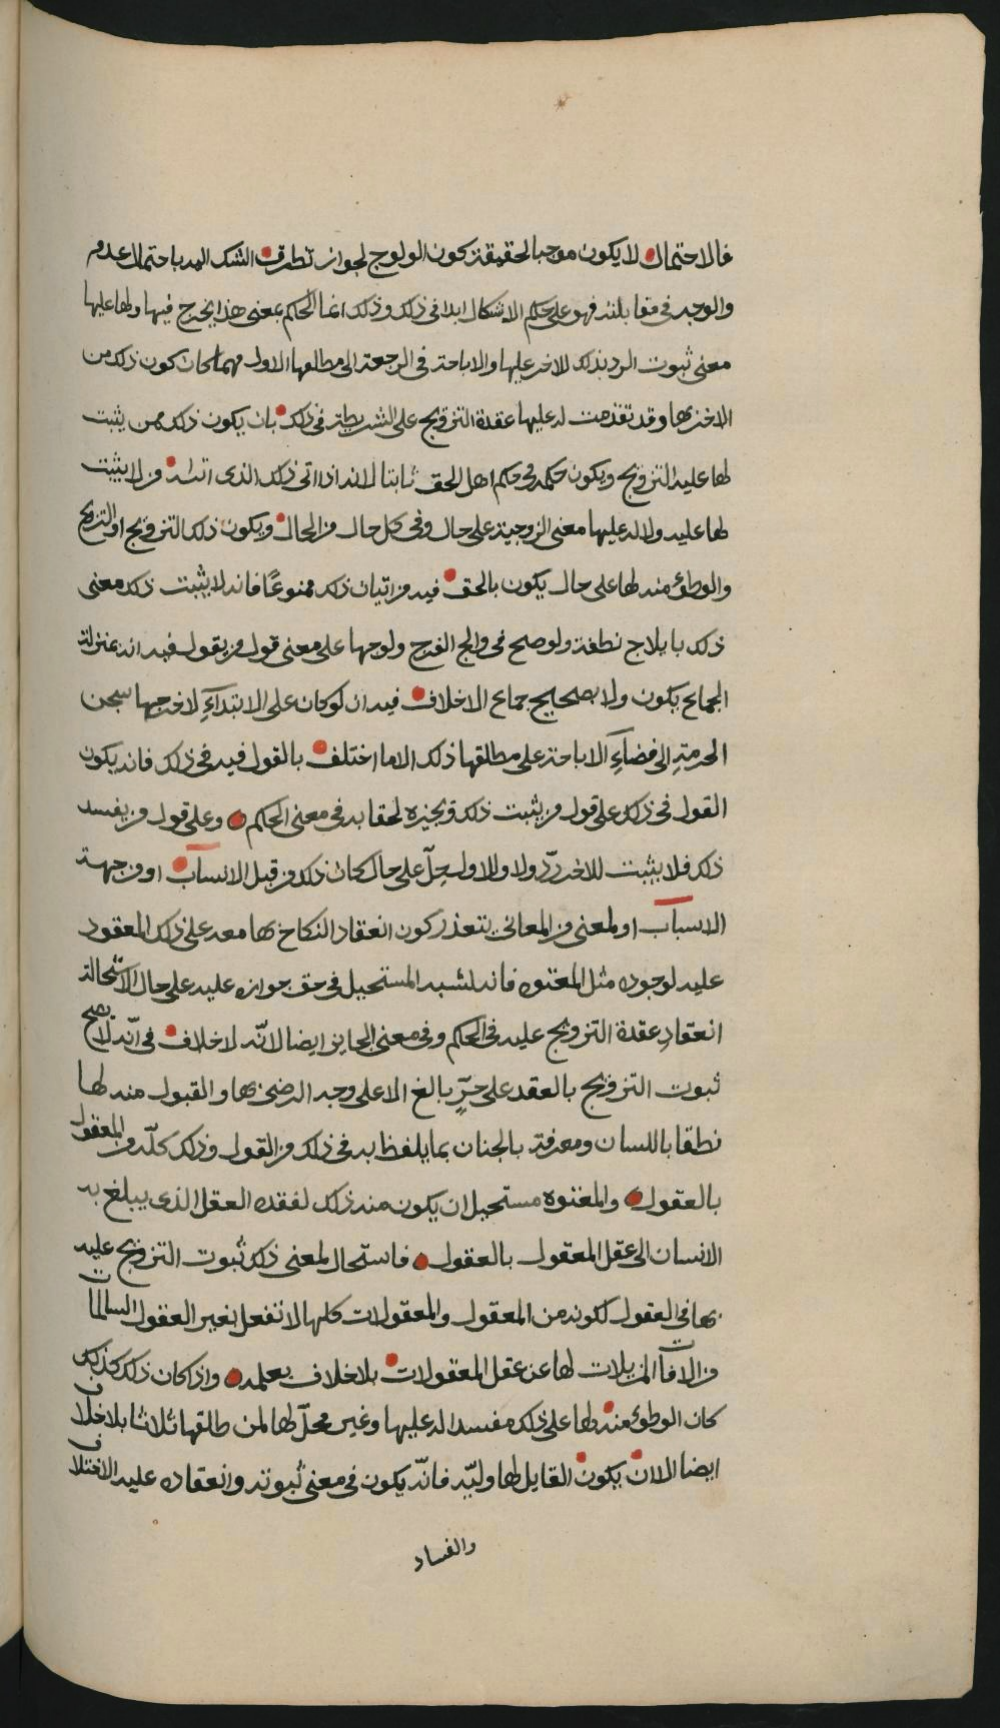 فالاحتمال لا يكون موجبا لحقيقة كون الولوج لجواز تطرق الشك اليه باحتمال عدم
والوجه في مقابلته فهو على حكم الاشكال ابدا في ذلك وذلك انما الحاكم بمعنى هذا يخرج فيها ولها عليها
معنى ثبوت الرد بذلك للاخر عليها والاباحة في الرجعة الى مطالقها الاول مهما كان كون ذلك من
الاخر بها وقد تقدمت له عليها عقدة التزويج على الشريطة في ذلك بان يكون ذلك ممن يثبت
لها عليه التزويج ويكون حكمه في حكم اهل الحق ثابتا لانه اذا اتى ذلك الذي اتاه من لا يثبت
لها عليه ولا له عليها معنى الزوجية على حال وفي كل حال من الحال ويكون ذلك التزويج او التزيج
والوطئ منه لها على حال يكون بالحق فيه من اتيان ذلك ممنوعًا فانه لا يثبت ذلك معنى
ذلك بايلاج نطفة ولو صح في والج الفرج ولوجها على معنى قول من يقول فيه انه بمنزلة
الجماع يكون ولا بصحيح جماع الاخلاف فيه ان لو كان على الابتداء لاخرجها سجن
الحرمة الى فضاء الاباحة على مطلقها ذلك الا ما اختلف بالقول فيه في ذلك فانه يكون
القول في ذلك على قول من يثبت ذلك ويجيزه لحقا به في معنى الحاكم وعلى قول من يفسد
ذلك فلا يثبت للاخر ردّ ولا وللاول حلّ على حال كان ذلك من قبل الانساب او من جهة
الاسباب او لمعنى من المعاني بتعذر كون انعقاد النكاح بها معه على ذلك المعقود
عليه لوجوده مثل المعتوه فانه لشبه المستحيل في حق جوازه عليه على حال الاستحالة
انعقادِ عقدة التزويج عليه في الحكم وفي معنى الجايز ايضا لانّه لا خلاف في انّه لا يصح
ثبوت التزويج بالعقد على حرٍّ بالغ الا على وجه الرضى بها والقبول منه لها
نطقا باللسان ومعرفة بالجنان بما يلفظ به في ذلك من القول وذلك كلّه من المعقول
بالعقول والمعتوه مستحيل ان يكون منه ذلك لفقده العقل الذي يبلغ به
الانسان الى عقل المعقول بالعقول فاستحال لمعنى ذلك ثبوت التزويج عليه
بها في العقول لكونه من المعقول والمعقولات كلها لا تفعل بغير العقول السالمات
من الافات المزيلات لها عن عقل المعقولات بلا خلاف بعلمه واذ كان ذلك كذلك
كان الوطوء منه لها على ذلك مفسدا له عليها وغير محلّ لها لمن طالقها ثلاثا بلا خلاف
ايضا الا ان يكون القايل لها وليّه فانّه يكون في معنى ثبوته وانعقاده عليه الاختلاف
والفساد